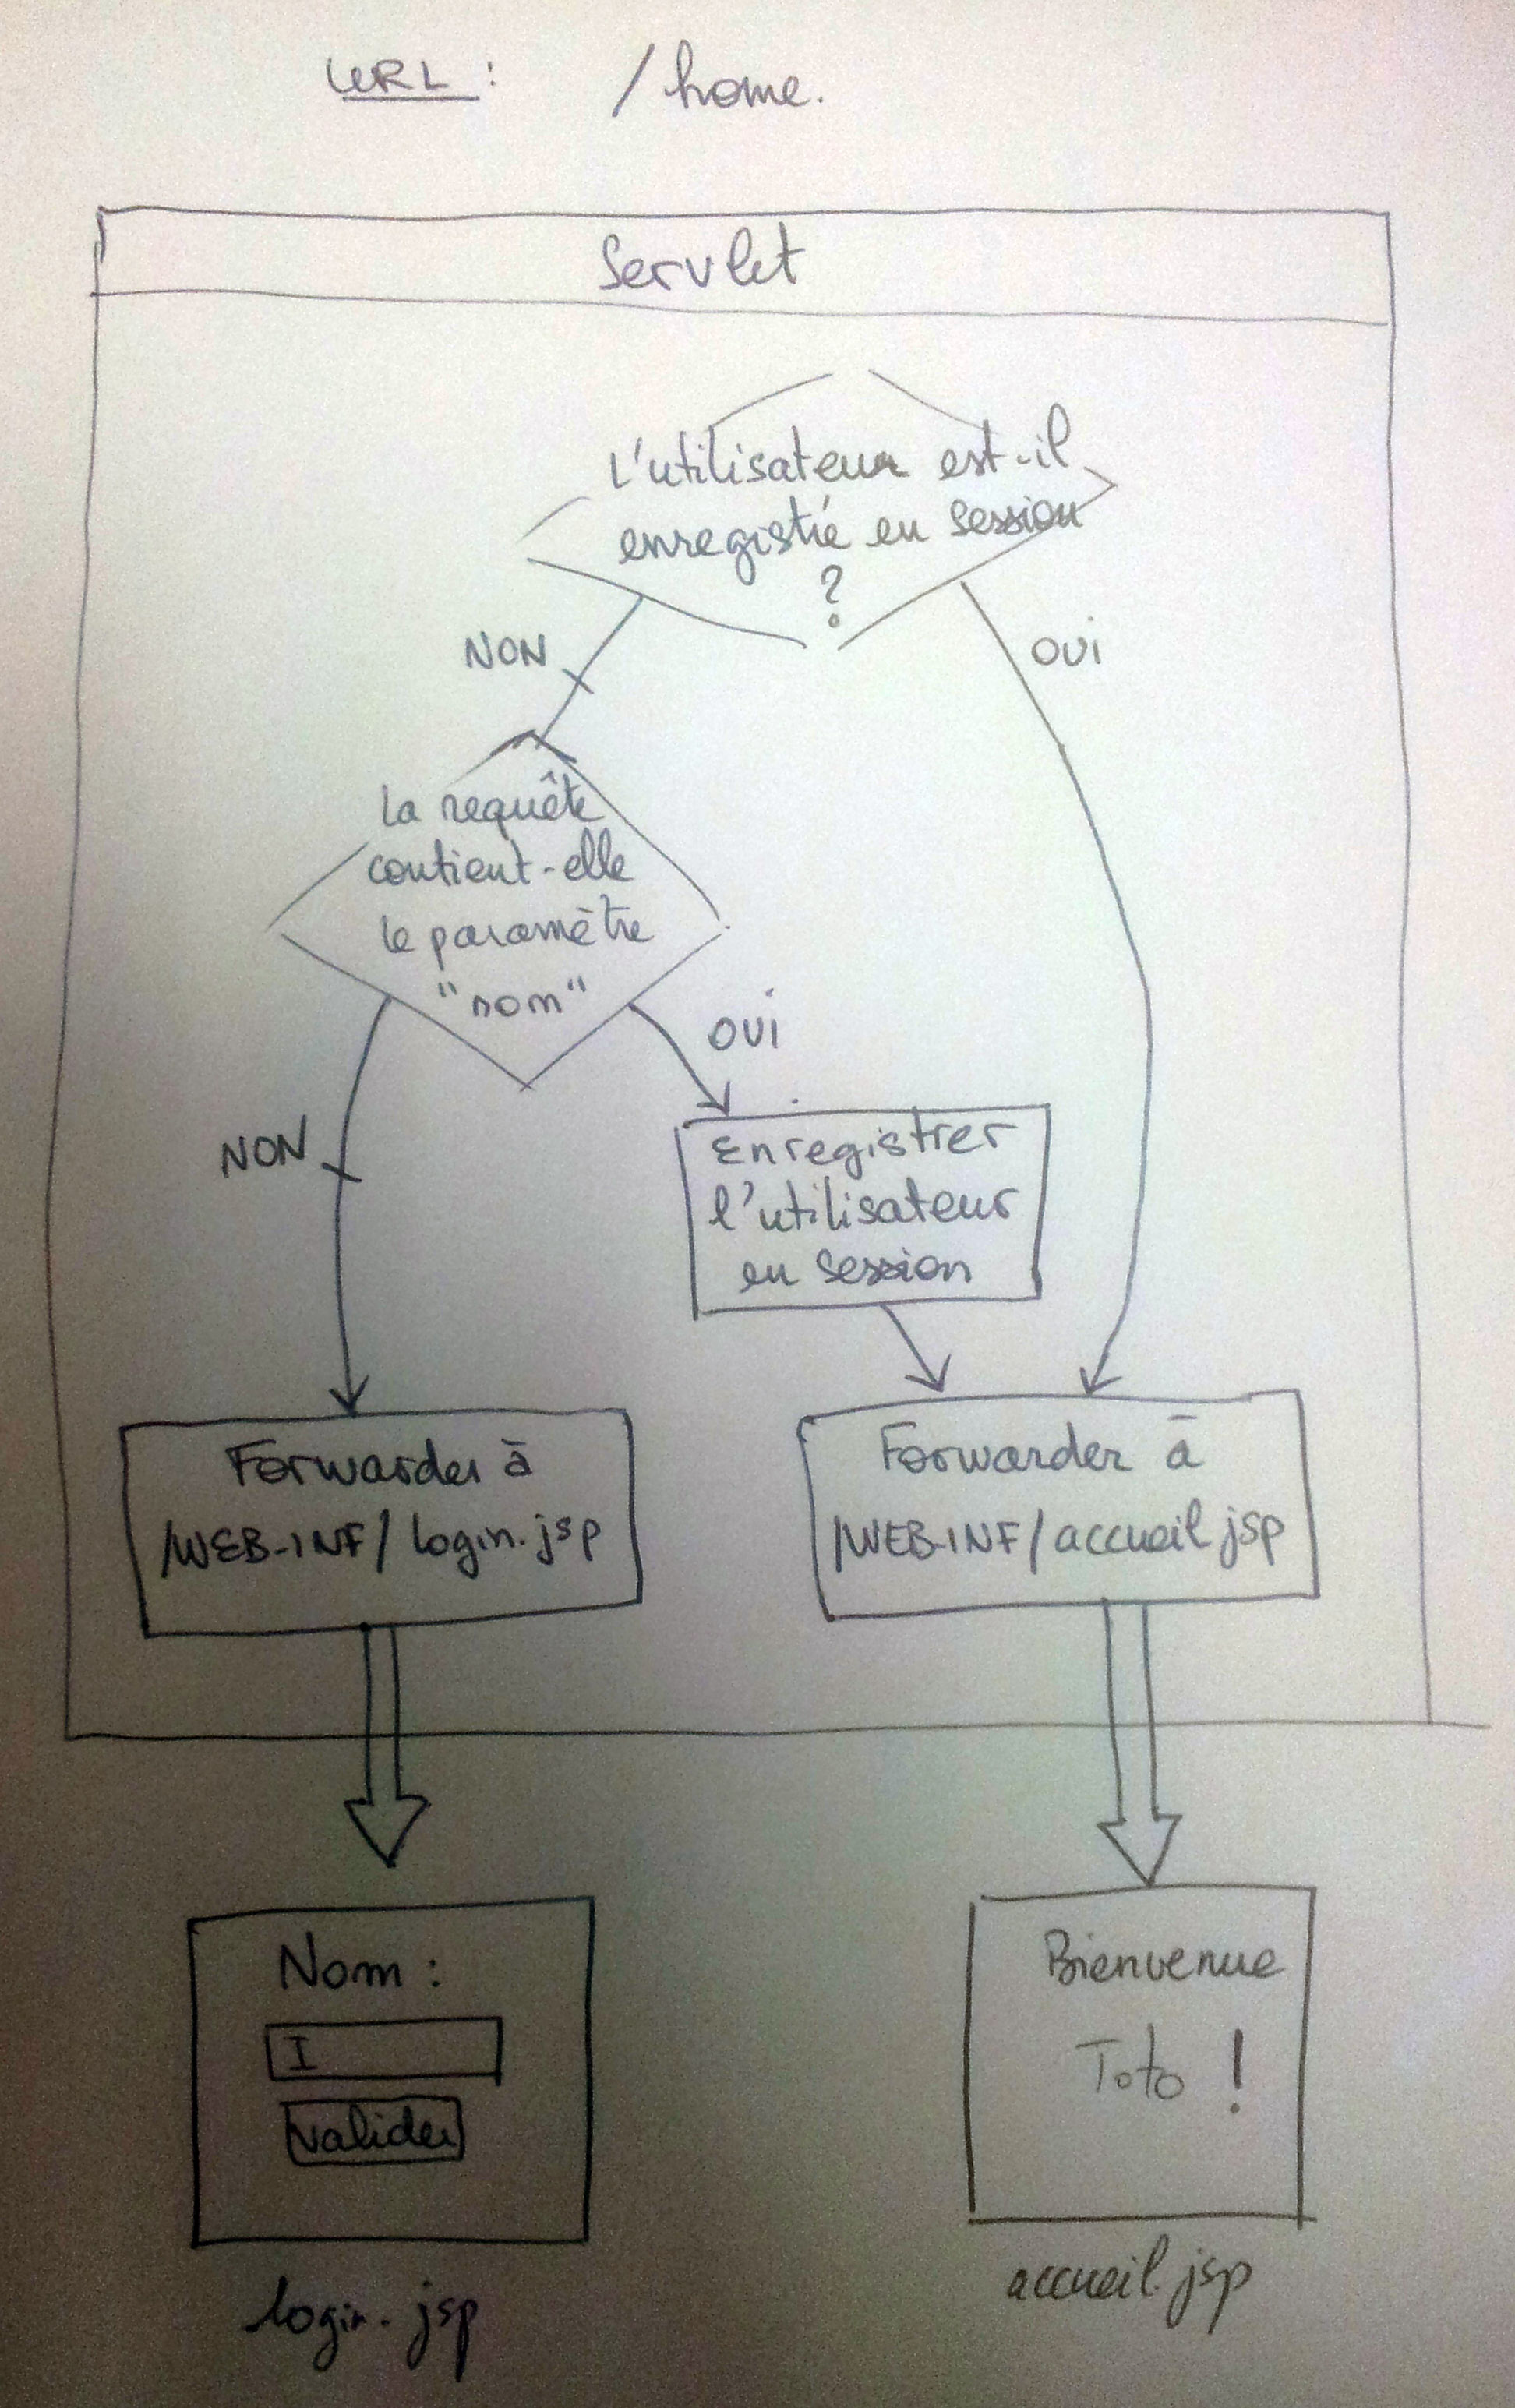 URL : /home.
Servlet
L'utilisateur est-il
enregistré en session
?
NON
OUI
La requête
contient-elle
le paramètre
"nom"
OUI
NON
Enregistrer
l'utilisateur
en session
Forwarder à
/WEB-INF/login.jsp
Forwarder à
/WEB-INF/accueil.jsp
Nom :
I
valider
login.jsp
Bienvenue
Toto !
accueil.jsp